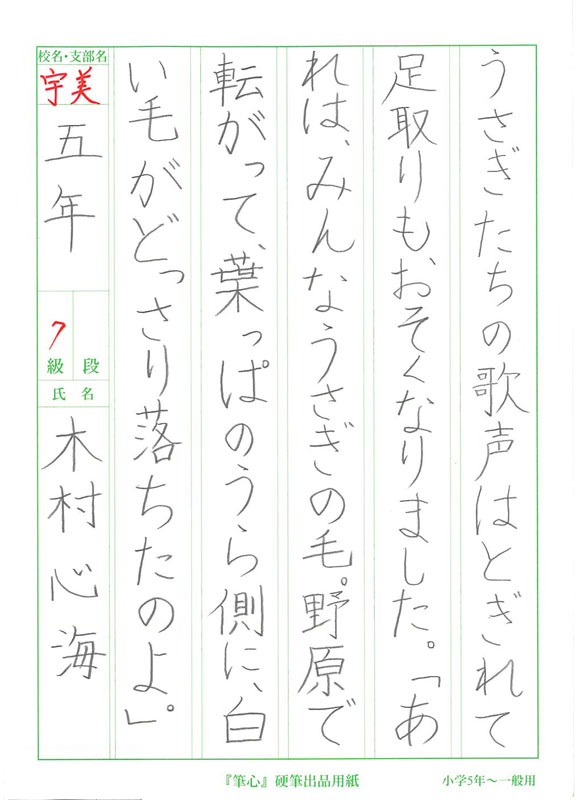 うさぎたちの歌声はとぎれて
足取りもおそくなりました。「あ
れは、みんなうさぎの毛。野原で
転がって、葉っぱのうら側に、白
い毛がどっさり落ちたのよ。」
校名・支部名
宇美
五年
7
級 段
氏 名
木村心海
『筆心』硬筆出品用紙
小学5年〜一般用